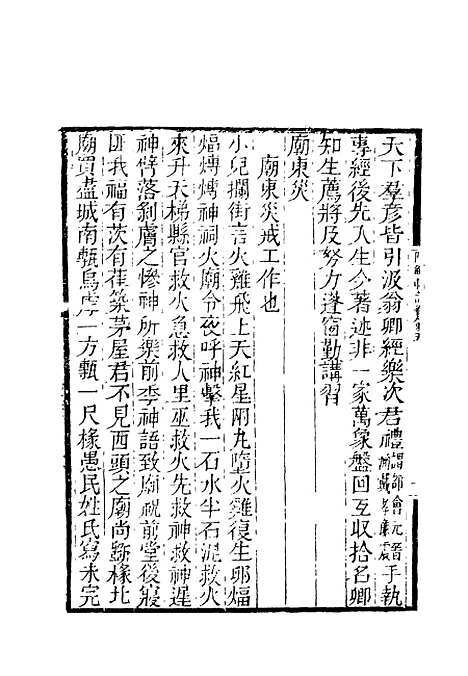 天下羣彥皆引汲翁卿經樂次君禮手執
專經後先入生今著述非一家萬象盤回互収拾名卿
知生薦將及努力蓬窗勤講習
廟東災
廟東災戒工作也
小兒攔街言火雞飛上天紅星兩九墮火雞復生卵煏
煏煿煿神祠火廟令夜呼神擊我一石水半石泥救火
來升天梯縣官救火急救人里巫救火先救神救神遲
神臂落剝膚之慘神所樂前季神語致廟祝前堂後寢
匪我福有茨有萑築茅屋君不見西頭之廟尚蘇椽北
廟買盡城南甎烏虖一方甎一尺椽愚民姓氏寫未完